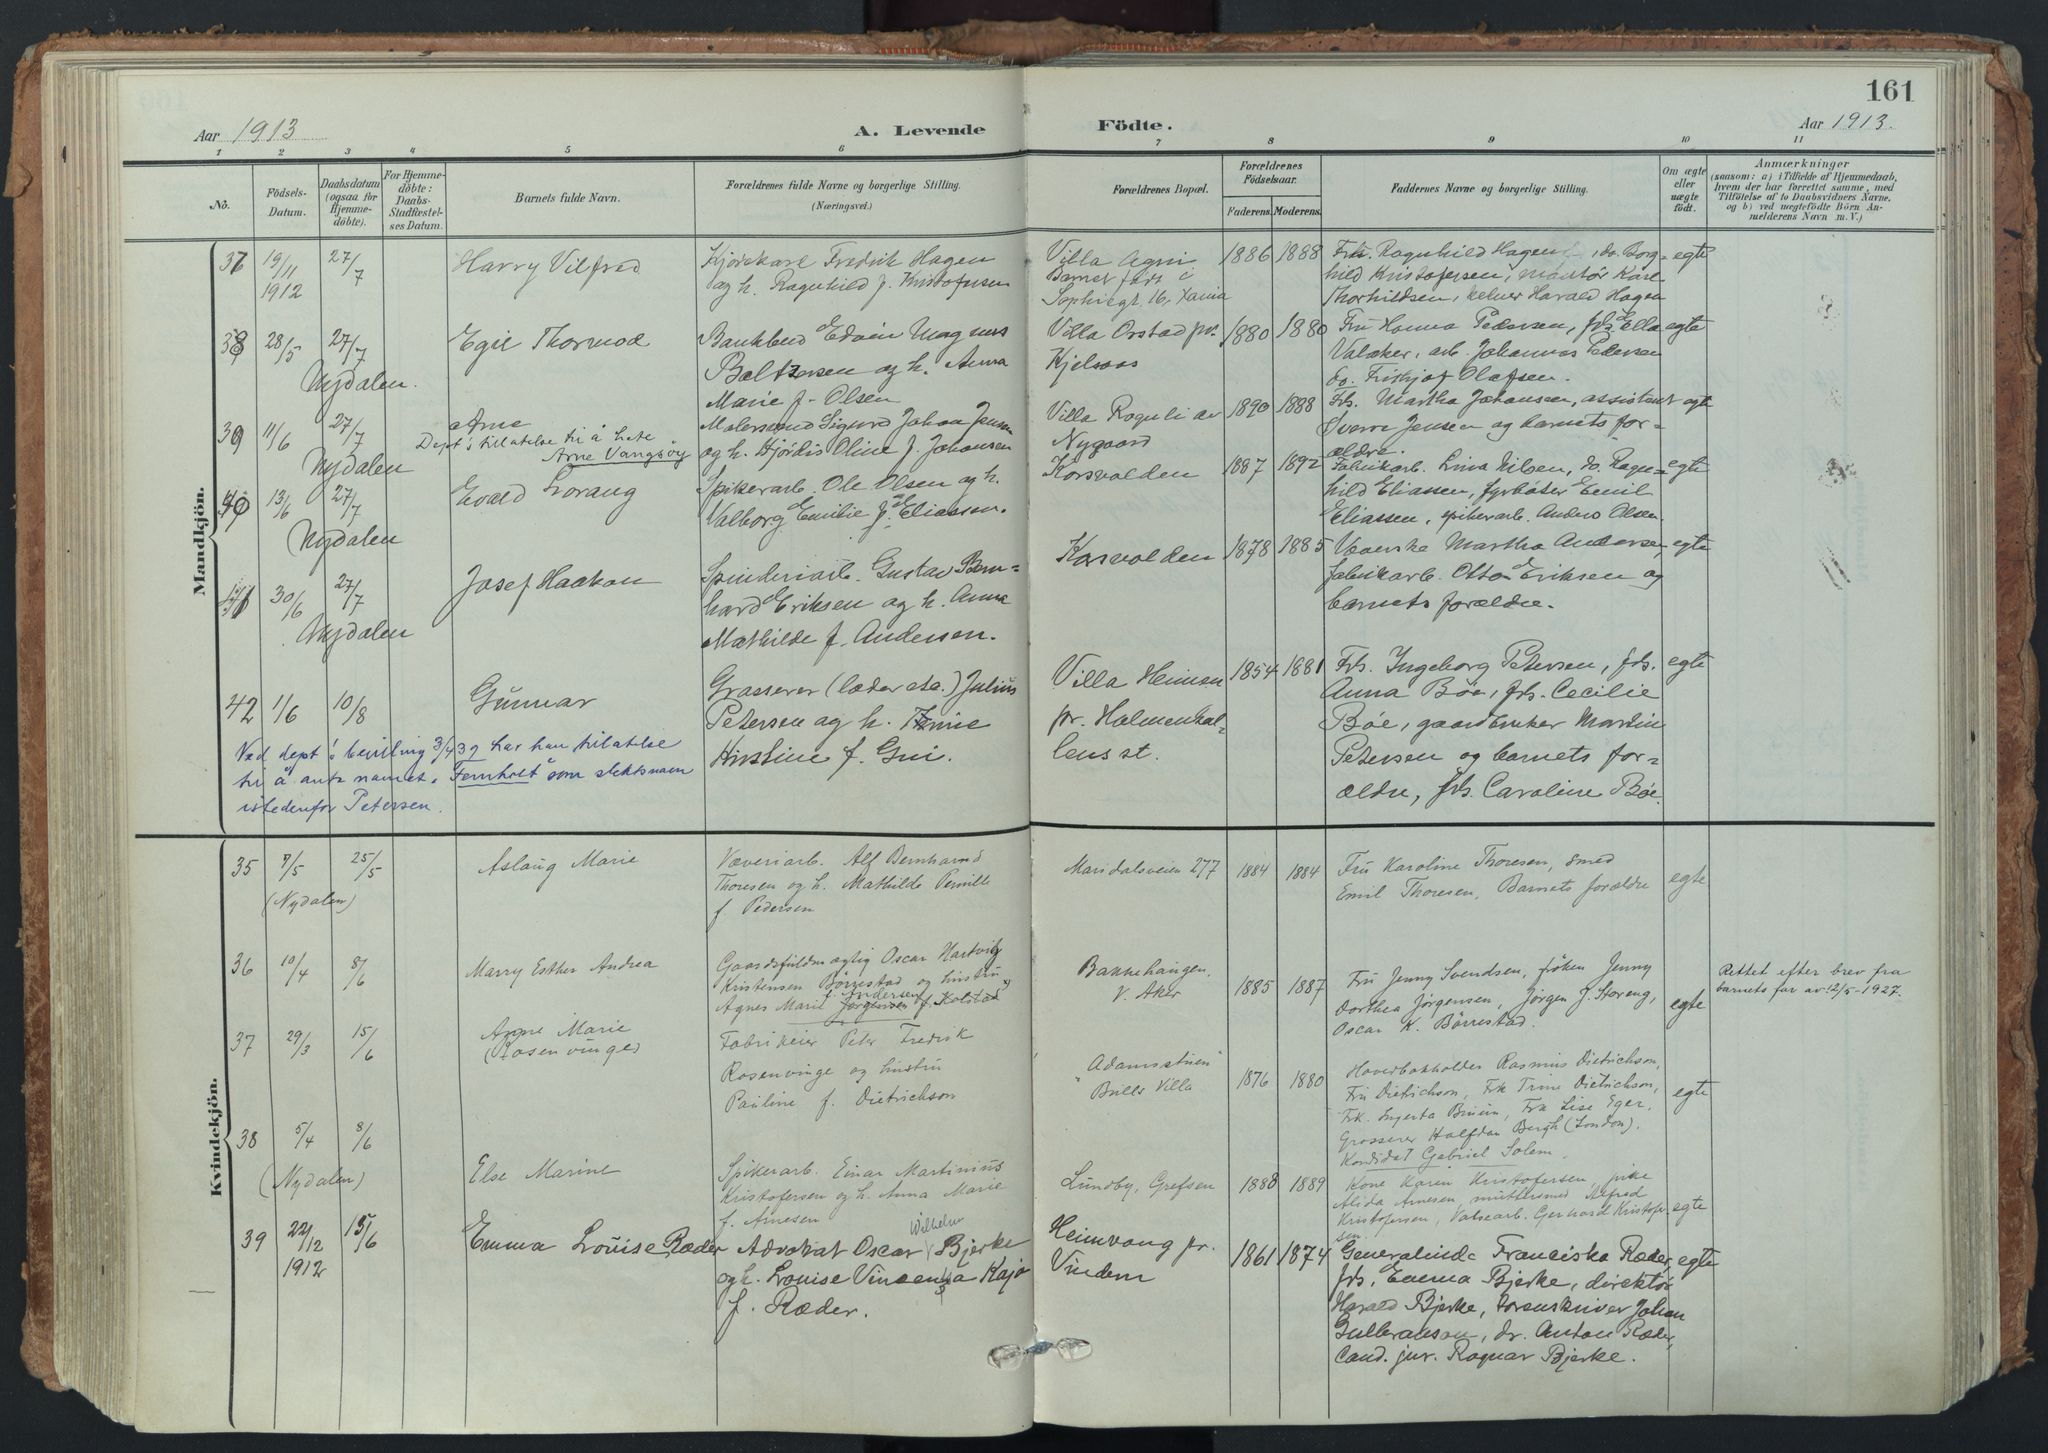 161
Aar 1913
A. Levende Födte.
Aar 1913.
1 2 3 4 5 6 7 8 9 10 11
No.
Födsels-
Datum.
Daabsdatum
(ogsaa for
Hjemme-
döbte).
For Hjemme-
döbte:
Daabs-
Stadfæstel-
ses Datum.
Barnets fulde Navn.
Forældrenes fulde Navne og borgerlige Stilling.
(Næringsvei.)
Forældrenes Bopæl.
Forældrenes
Födselsaar.
Faderens. Moderens.
Faddernes Navne og borgerlige Stilling.
Om ægte
eller
uægte
födt.
Anmærkninger
(saasom: a) i Tilfælde af Hjemmedaab,
hvem der har forrettet samme, med
Tilföielse af to Daabsvidners Navne,
og b) ved uægtefödte Börn An-
melderens Navn m. V.)
Mandkjön.
37 19/11 1912 27/7
Harry Vilfred
Kjørekarl Fredrik Hagen
og h. Ragnhild f. Kristofersen
Villa Agni
Barnet født i
Sophiegt 16, Xania
1886 1888
Fru Ragnhild Hagen, do. Borg-
hild Kristofersen, montør Karl
Thorhildsen, kelner Harald Hagen
egte
38 28/5 27/7
Nydalen.
Egil Thormod
Bankbud Edvin Magnus
Baltzersen og h. Anna
Marie f. Olsen
Villa Orstad pr.
Kjelsaas
1880 1880
Fru Hanna Pedersen, frk. Ella
Valaker, arb. Johannes Pedersen
do. Frithjof Olafsen.
egte
39 11/6 27/7
Nydalen
Arne
Dept's tillatelse til å hete
Arne Vangsøy
Malersvend Sigurd Johan Jensen
og h. Hjørdis Oline f. Johansen
Villa Roguli av
Nygaard
1890 1888
Frk. Martha Johansen, assistent
Sverre Jensen og barnets for-
ældre.
egte
40 13/6 27/7
Nydalen
Evald Lorang
Spikerarb. Ole Olsen og h.
Valborg Emilie f. Eliassen.
Korsvolden
1887 1892
Fabrikarb. Lina Nilsen, do. Ragn-
hild Eliassen, fyrbøter Emil
Eliassen, spikerarb. Anders Olsen.
egte
41 30/6 27/7
Nydalen
Josef Haakon
Spinderiarb. Gustav Bern-
hard Eriksen og h. Anna
Mathilde f. Andersen.
Korsvolden
1878 1885
Væverske Martha Andersen,
fabrikarb. Otto Eriksen og
barnets forældre.
egte
42 11/6 10/8
Gunnar
Grosserer (læder etc.) Julius
Petersen og h.
Kirstine f.
Villa Heimen
pr. Holmenkol-
lens st.
1854 1881
Frk. Ingeborg Petersen, frk.
Anna Bøe, frk. Cecilie
Bøe, gaardbruker Martin
Petersen og barnets for-
ældre, frk. Caroline Bøe.
egte
Ved dept's bevilling 3/4 39 har han tillatelse
til å anta navnet „Fernholt" som slektsnavn
istedenfor Petersen.
Kvindekjön.
35 7/5 25/5
(Nydalen)
Aslaug Marie
Væveriarb. Alf Bernhard
Thoresen og h. Mathilde Pernille
f. Pedersen
Maridalsveien 277
1884 1884
Fru Karoline Thoresen, smed
Emil Thoresen, Barnets forældre
egte
36 10/4 8/6
Marry Esther Andrea
Gaardsfuldmægtig Oscar Hartvig
Kristensen Børrestad og hustru
Agnes Marie f. Andersen Jørgensen f. Kolstad
Bakkehaugen,
V. Aker
1885 1887
Fru Jenny Svendsen, frøken Jenny
Dorthea Jørgensen, Jørgen J. Storeng,
Oscar K. Børrestad.
egte
Rettet efter brev fra
barnets far av 12/5-1927.
37 29/3 15/6
Anne Marie
(Rosenvinge)
Fabrikeier Peter Fredrik
Rosenvinge og hustru
Pauline f. Dietrichson
„Adamstuen"
Bulls Villa
1876 1880
Overbokholder Rasmus Dietrichson,
Fru Dietrichson, Frk Trine Dietrichson,
Frk. Ingerta Bruun, Frk Lise Eger,
Grosserer Halfdan Bergh (London).
Kandidat Gabriel Solem.
egte
38 5/4 8/6
(Nydalen)
Else Marine
Spikerarb. Einar Martinius
Kristofersen og h. Anna Marie
f. Arnesen
Lundby, Grefsen
1888 1889
Kone Karen Kristofersen, pike
Alida Arnesen, Alfred
Kristofersen, Valsearb. Gerhard Kristofer-
sen.
egte
39 22/12 1912 15/6
Emma Louise Ræder
Advokat Oscar Wilhelm Bjerke
og h. Louise Vincentza Kaja
f. Ræder.
Heimvang pr.
Vindern
1861 1874
Generalinde Franciska Ræder,
frk. Emma Bjerke, direktør
Harald Bjerke, sorenskriver Johan
Gulbranson, dr. Anton Ræder,
Cand. jur. Ragnar Bjerke.
egte